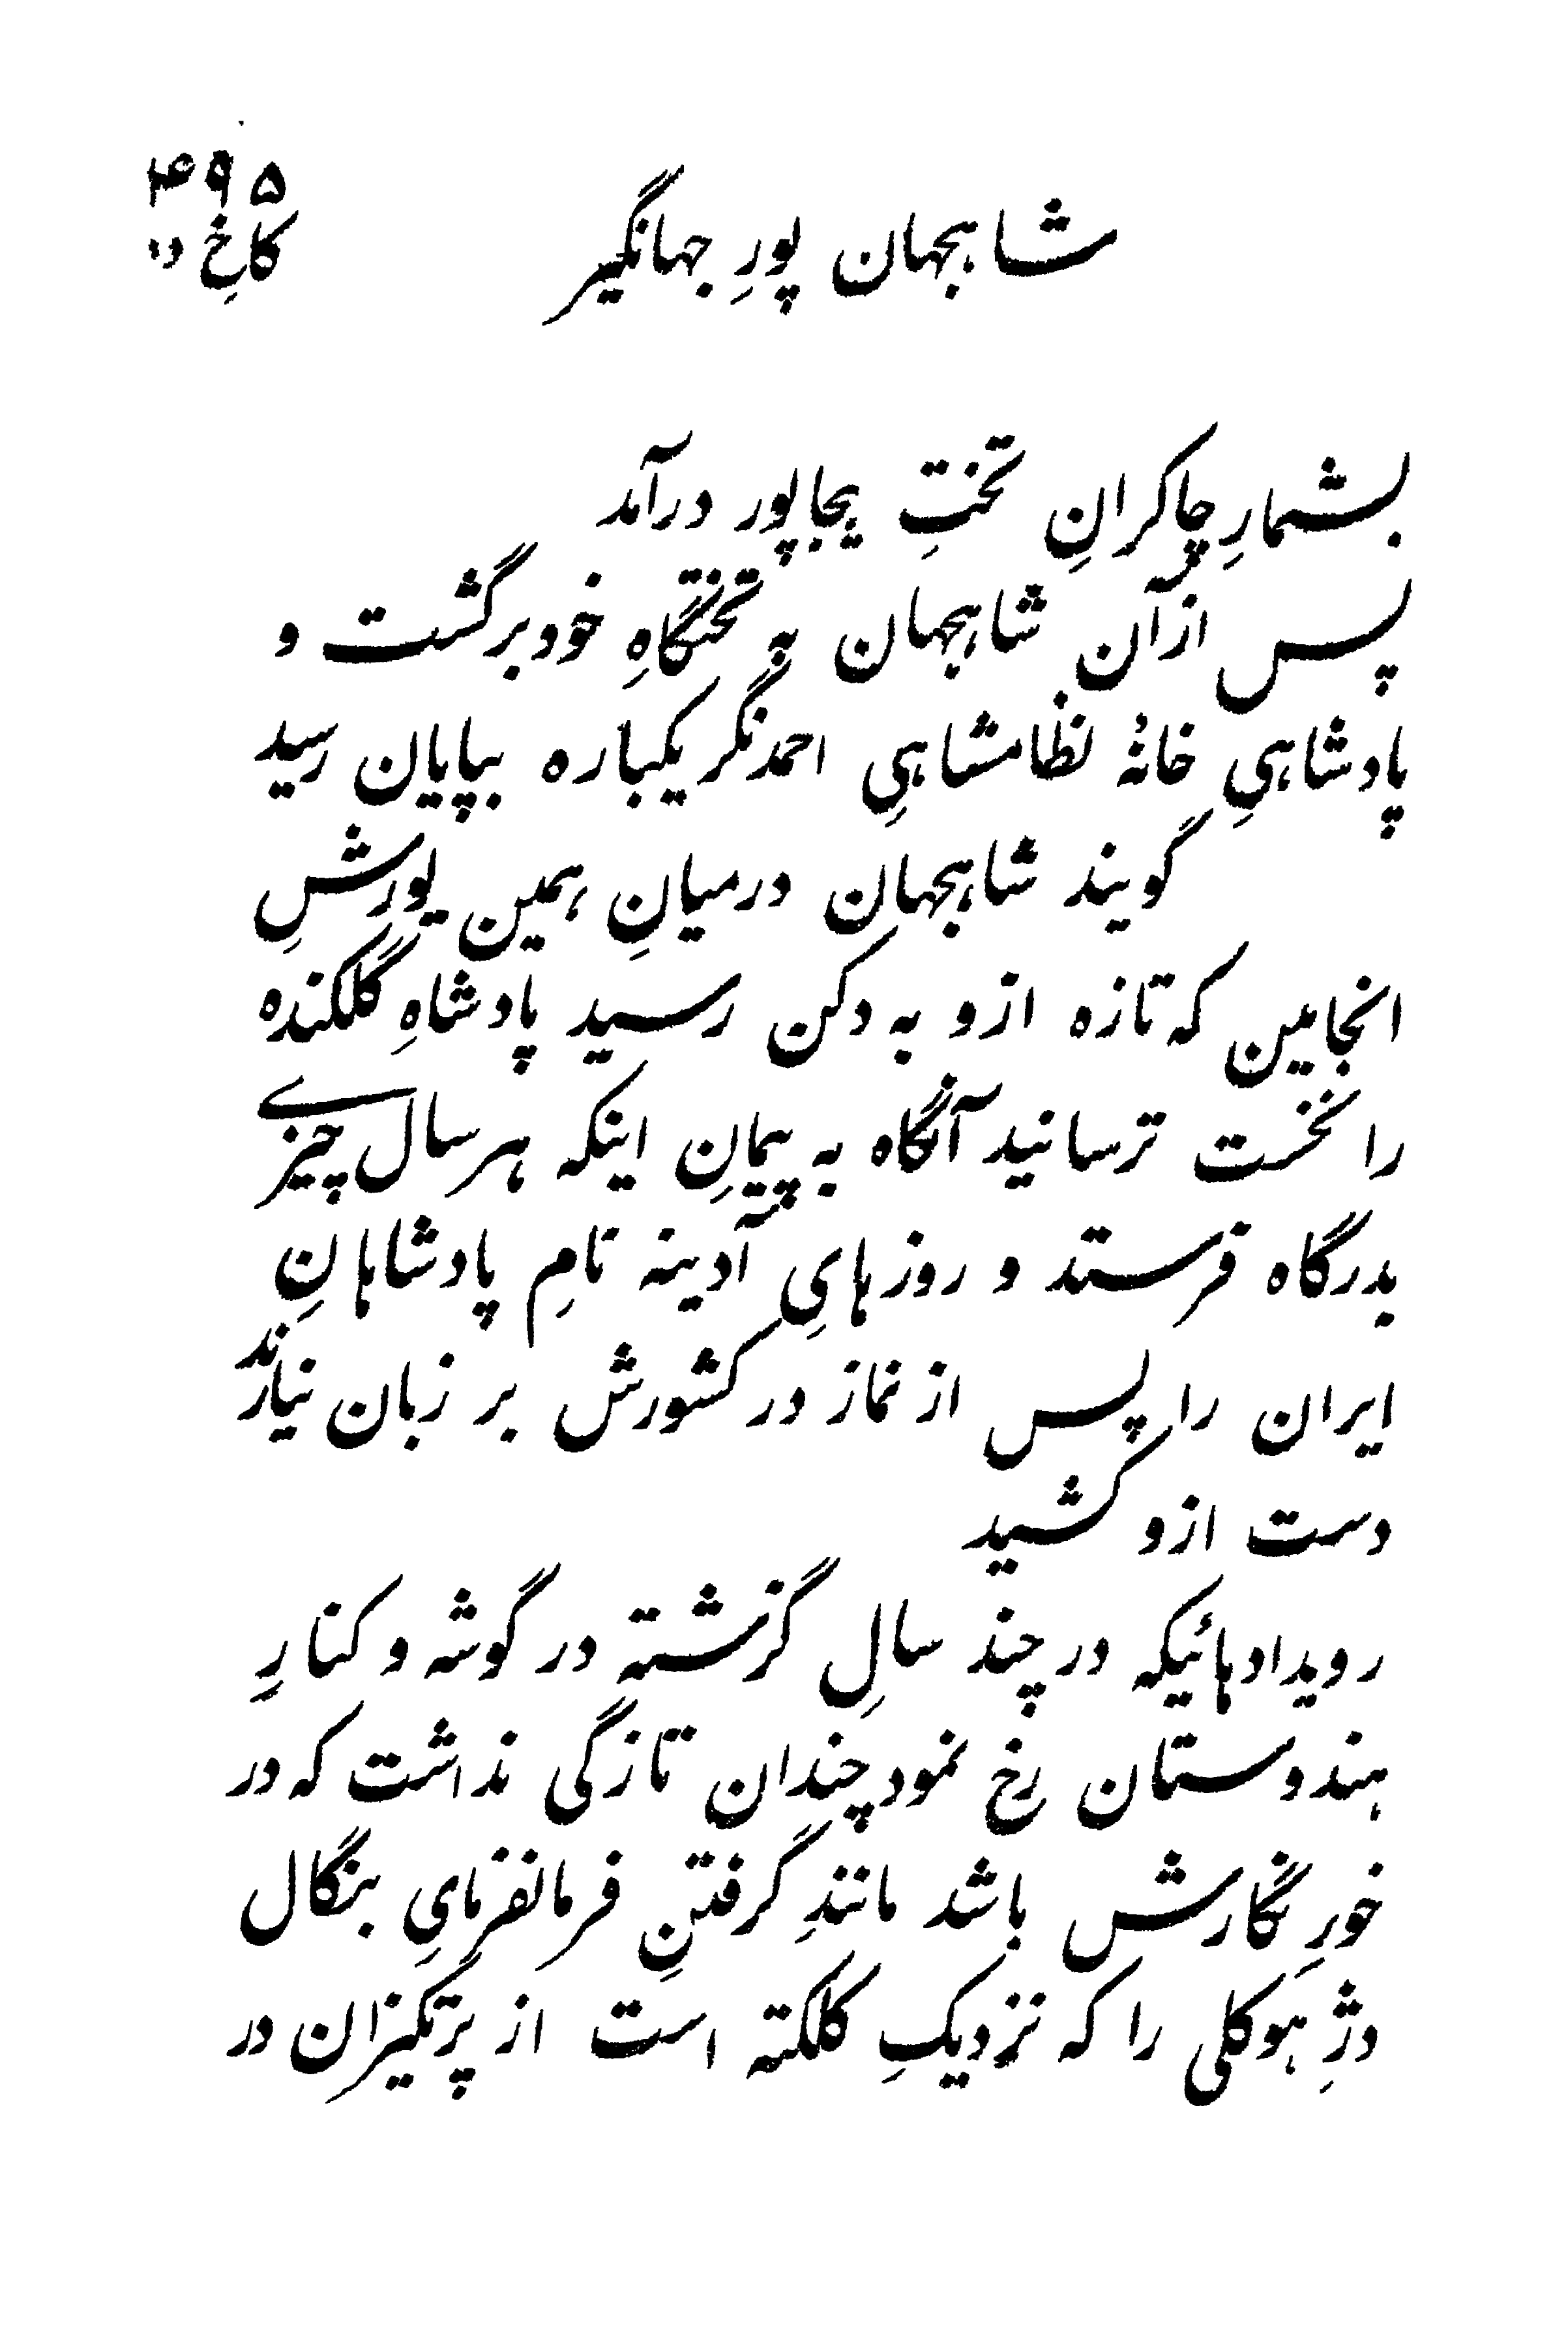 ۴۹۵
شاہجہان پورِ جہانگیر
کاخِ د
بشمارِ چاکرانِ تختِ بیجاپور درآمد
پس ازآن شاہجہان بہ تختگاہِ خود برگشت و
پادشاہیِ خانۂ نظامشاہیِ احمدنگر یکبارہ بپایان رسید
گویند شاہجہان درمیانِ ہمین یورشِ
انجامین کہ تازہ ازو بہ دکن رسید پادشاہِ گلکندہ
را نخست ترسانید آنگاہ بہ پیمانِ اینکہ ہر سال چیزے
بدرگاہ فرستد و روزہایِ آدینہ نامِ پادشاہانِ
ایران را پس از نماز در کشورش بر زبان نیارند
دست ازو کشید
رویدادہائیکہ در چند سالِ گزشتہ در گوشہ و کنارِ
ہندوستان رخ نمود چندان تازگی نداشت کہ در
خورِ نگارش باشد مانندِ گرفتنِ فرمانفرمایِ بنگال
دژِ ہوکلی را کہ نزدیکِ کلکتہ است از پرتکیزان در